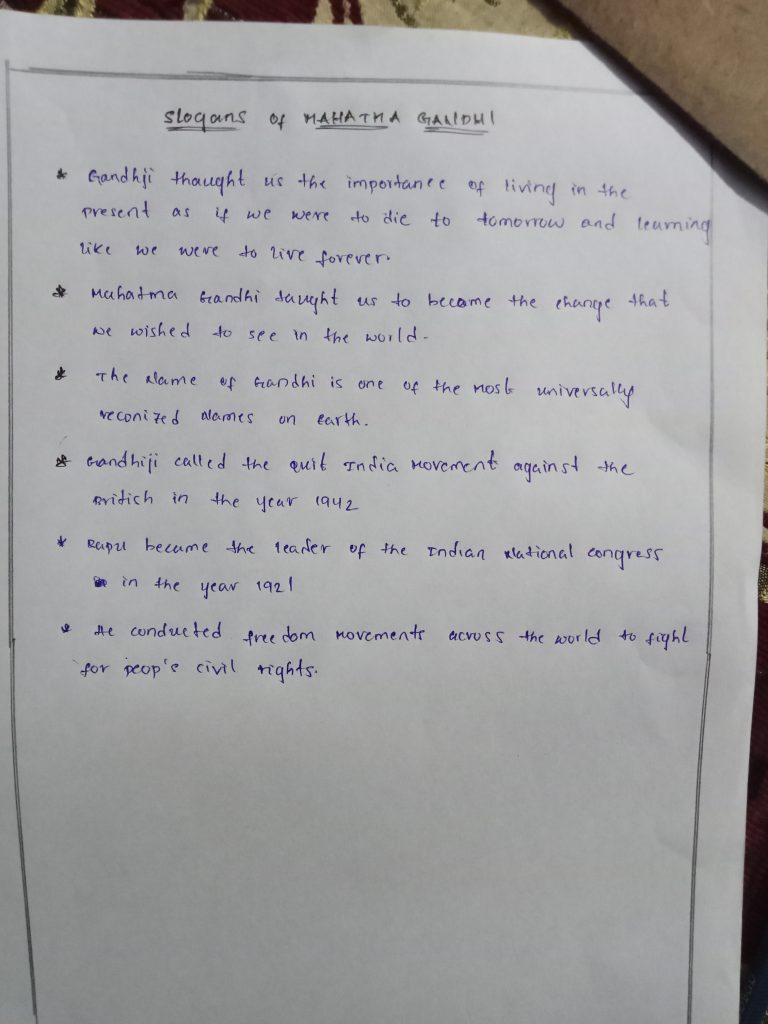 Slogans of MAHATMA GANDHI
* Gandhji thaught us the importance of living in the
present as if we were to die to tomorrow and learning
like we were to live forever.
* Mahatma Gandhi taught us to become the change that
we wished to see in the world.
* The Name of Gandhi is one of the most universally
reconized Names on Earth.
* Gandhiji called the quit India Movement against the
Britich in the year 1942
* Bapu became the leader of the Indian National congress
in the year 1921
* He conducted freedom Movements across the world to fight
for peop's civil rights.